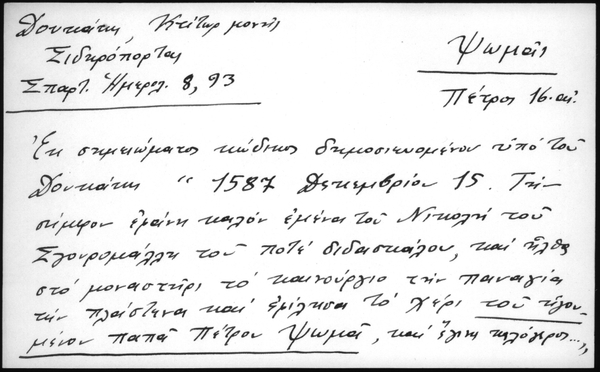 Δουκάκη, Κτίτωρ μονής
Σιδηρόπορτας
Σπαρτ. Ἡμερολ. 8, 93
Ψωμᾶς
Πέτρος 16. αἰ.
Ἐκ σημειώματος κώδικος δημοσιευομένου ὑπό τοῦ
Δουκάκη “ 1587 Δεκεμβρίου 15. Τήν
σήμερον ἐφάνη καλόν ἐμένα τοῦ Νικολῆ τοῦ
Σγουρομάλλη τοῦ ποτέ διδασκάλου, καί ἦλθα
στό μοναστήρι τό καινούργιο τήν παναγία
τήν πλάστενα καί ἐφίλησα τό χέρι τοῦ ἡγου-
μένου παπᾶ Πέτρου Ψωμᾶ, καί ἔγινα καλόγερος...„